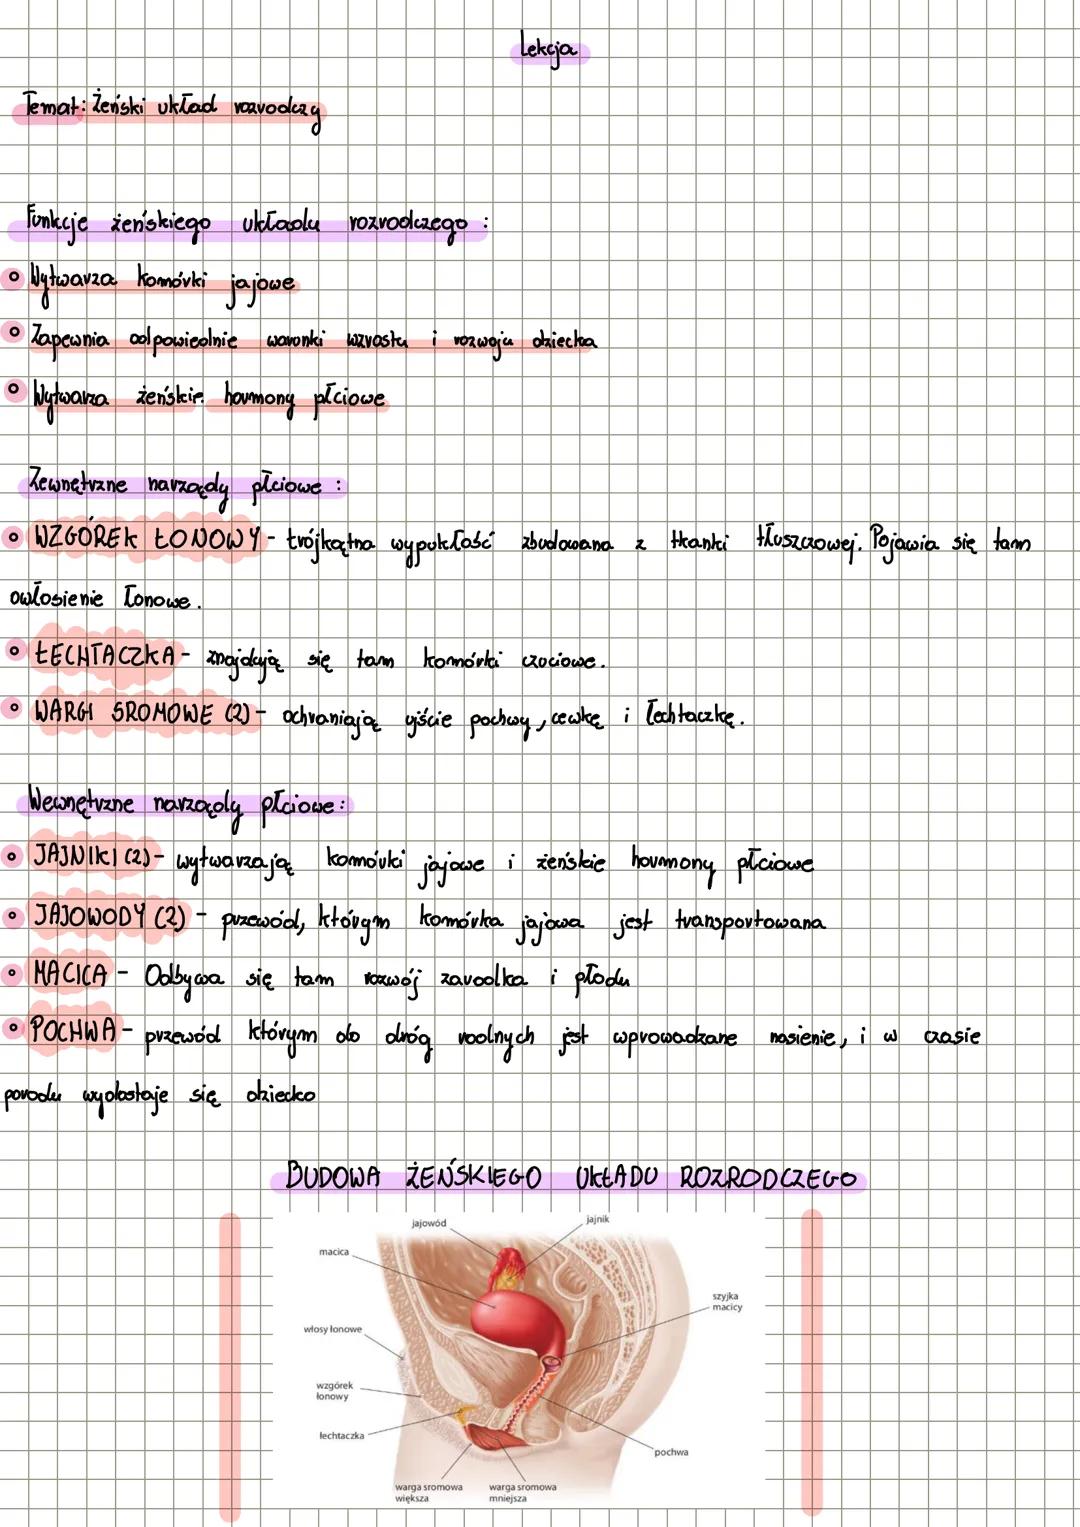 Lekcja
Temat: Żeński układ rozrodczy
Funkcje żeńskiego układu rozrodczego :
Wytwarza komórki jajowe
Zapewnia odpowiednie warunki wzrostu i rozwoju dziecka
Wytwarza żeńskie hormony płciowe
Zewnętrzne narządy płciowe :
WZGÓREK ŁONOWY - trójkątna wypukłość zbudowana z tkanki tłuszczowej. Pojawia się tam
owłosienie łonowe.
ŁECHTACZKA - znajdują się tam komórki czuciowe.
WARGI SROMOWE (2) - ochraniają ujście pochwy, cewkę i łechtaczkę.
Wewnętrzne narządy płciowe:
JAJNIKI (2) - wytwarzają komórki jajowe i żeńskie hormony płciowe
JAJOWODY (2) - przewód, którym komórka jajowa jest transportowana
MACICA - Odbywa się tam rozwój zarodka i płodu
POCHWA - przewód którym do dróg rodnych jest wprowadzane nasienie, i w czasie
porodu wydostaje się dziecko
BUDOWA ŻEŃSKIEGO UKŁADU ROZRODCZEGO
jajowód
jajnik
macica
szyjka
macicy
włosy łonowe
wzgórek
łonowy
łechtaczka
pochwa
warga sromowa
większa
warga sromowa
mniejsza